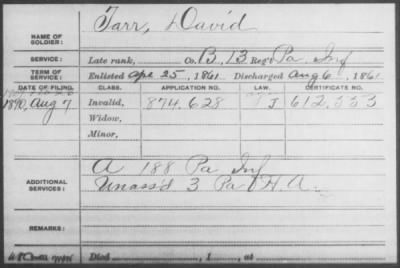 NAME OF SOLDIER: Tarr, David
SERVICE: Late rank, Co. B, 13 Reg't Pa Inf
TERM OF SERVICE: Enlisted Apr 25, 1861 Discharged Aug 6, 1861
DATE OF FILING. CLASS. APPLICATION NO. LAW. CERTIFICATE NO.
1890, Aug 7 Invalid, 874.628 J 612.553
Widow,
Minor,
ADDITIONAL SERVICES: A 188 Pa Inf
Unass'd 3 Pa H. A.
REMARKS:
Died , 1 , at